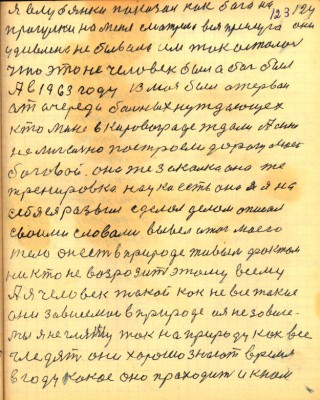 123 124
Я в лубянки показан как бога на
прогулки на меня смотрела вся прислуга они
удивлено не бывало им такой человек
что это не человек был а бог был
А в 1963 году 13 мая был оторван
от очереди больных нуждающех
кто мине в Кировограде ждали А сам
не легально построен дорогу моей
боговой. она же закалка она же
тренировка наука есть она я я на
себя развил сделал делом описал
своими словами вывел итог моего
тело он есть в природе живым фактом
ни кто не возрозит этому всему
А я человек такой как не все такие
они зависемии в природе а я не зовисе
мы я не гляжу так на природу как все
гледят они хорошо знают время
в году какое оно проходит и к нам